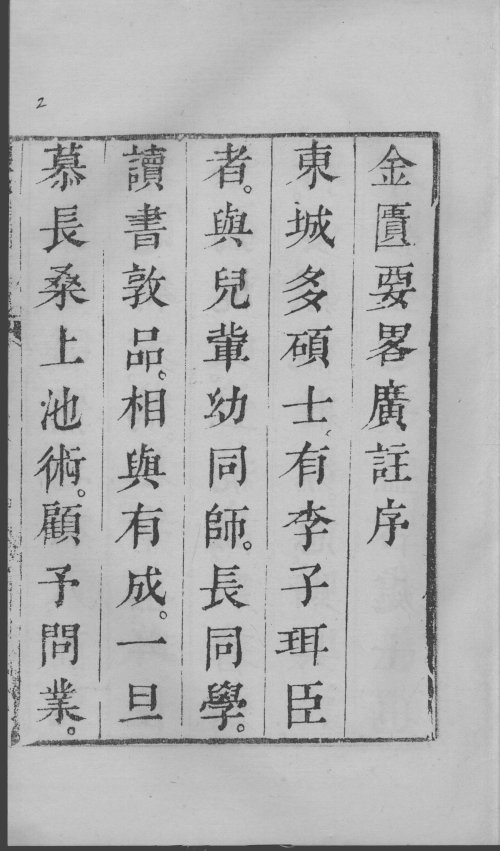 2
金匱要畧廣註序
東城多碩士、有李子珥臣
者。與兒輩幼同師。長同學。
讀書敦品。相與有成。一旦
慕長桑上池術。顧予問業。